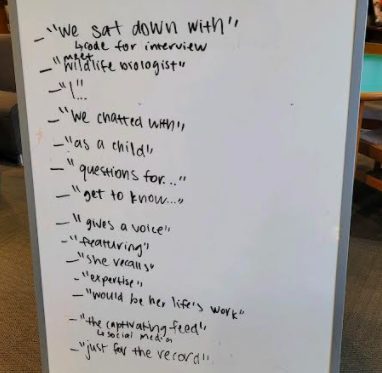 – "we sat down with"
↳ code for interview
– "meet wildlife biologist"
– "1...
– "we chatted with"
– "as a child"
– "questions for..."
– "get to know..."
– "gives a voice"
– "featuring"
– "she recalls"
– "expertise"
– "would be her life's work"
– "the captivating feed"
↳ social media
– "just for the record"